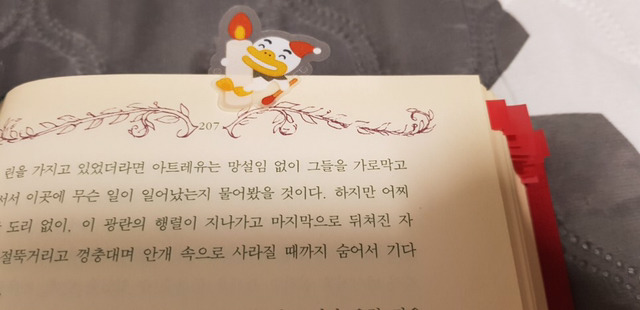 207
린을 가지고 있었더라면 아트레유는 망설임 없이 그들을 가로막고
서서 이곳에 무슨 일이 일어났는지 물어봤을 것이다. 하지만 어찌
도리 없이, 이 광란의 행렬이 지나가고 마지막으로 뒤쳐진 자
절뚝거리고 껑충대며 안개 속으로 사라질 때까지 숨어서 기다